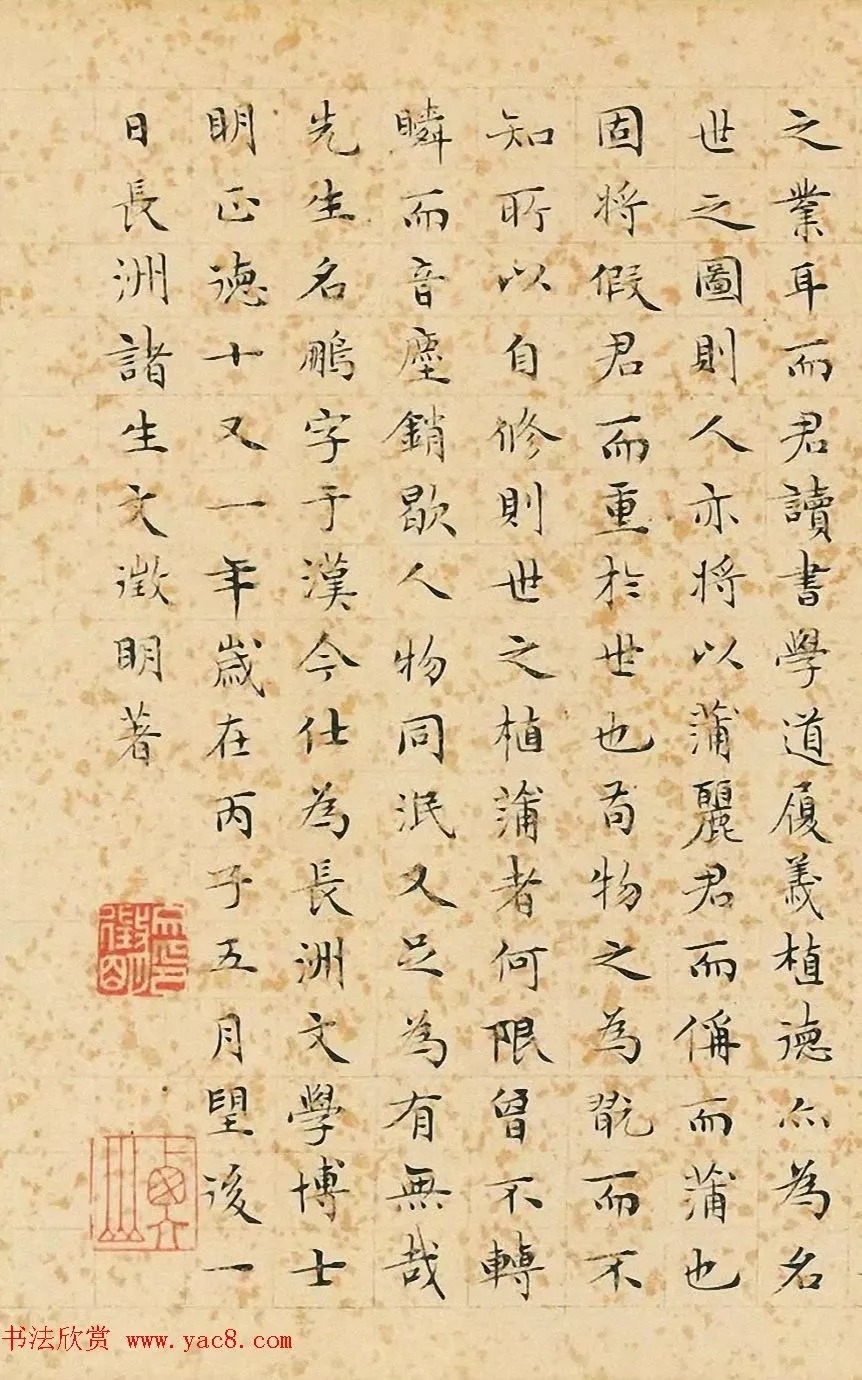 之業耳而君讀書學道履義植德以為名
世之圖則人亦將以蒲麗君而偁而蒲也
固將假君而重於世也苟物之為翫而不
知所以自修則世之植蒲者何限曾不轉
瞬而音塵銷歇人物同泯又足為有無哉
先生名鵬字于漢今仕為長洲文學博士
明正德十又一年歲在丙子五月望後一
日長洲諸生文徵明著
书法欣赏 www.yac8.com